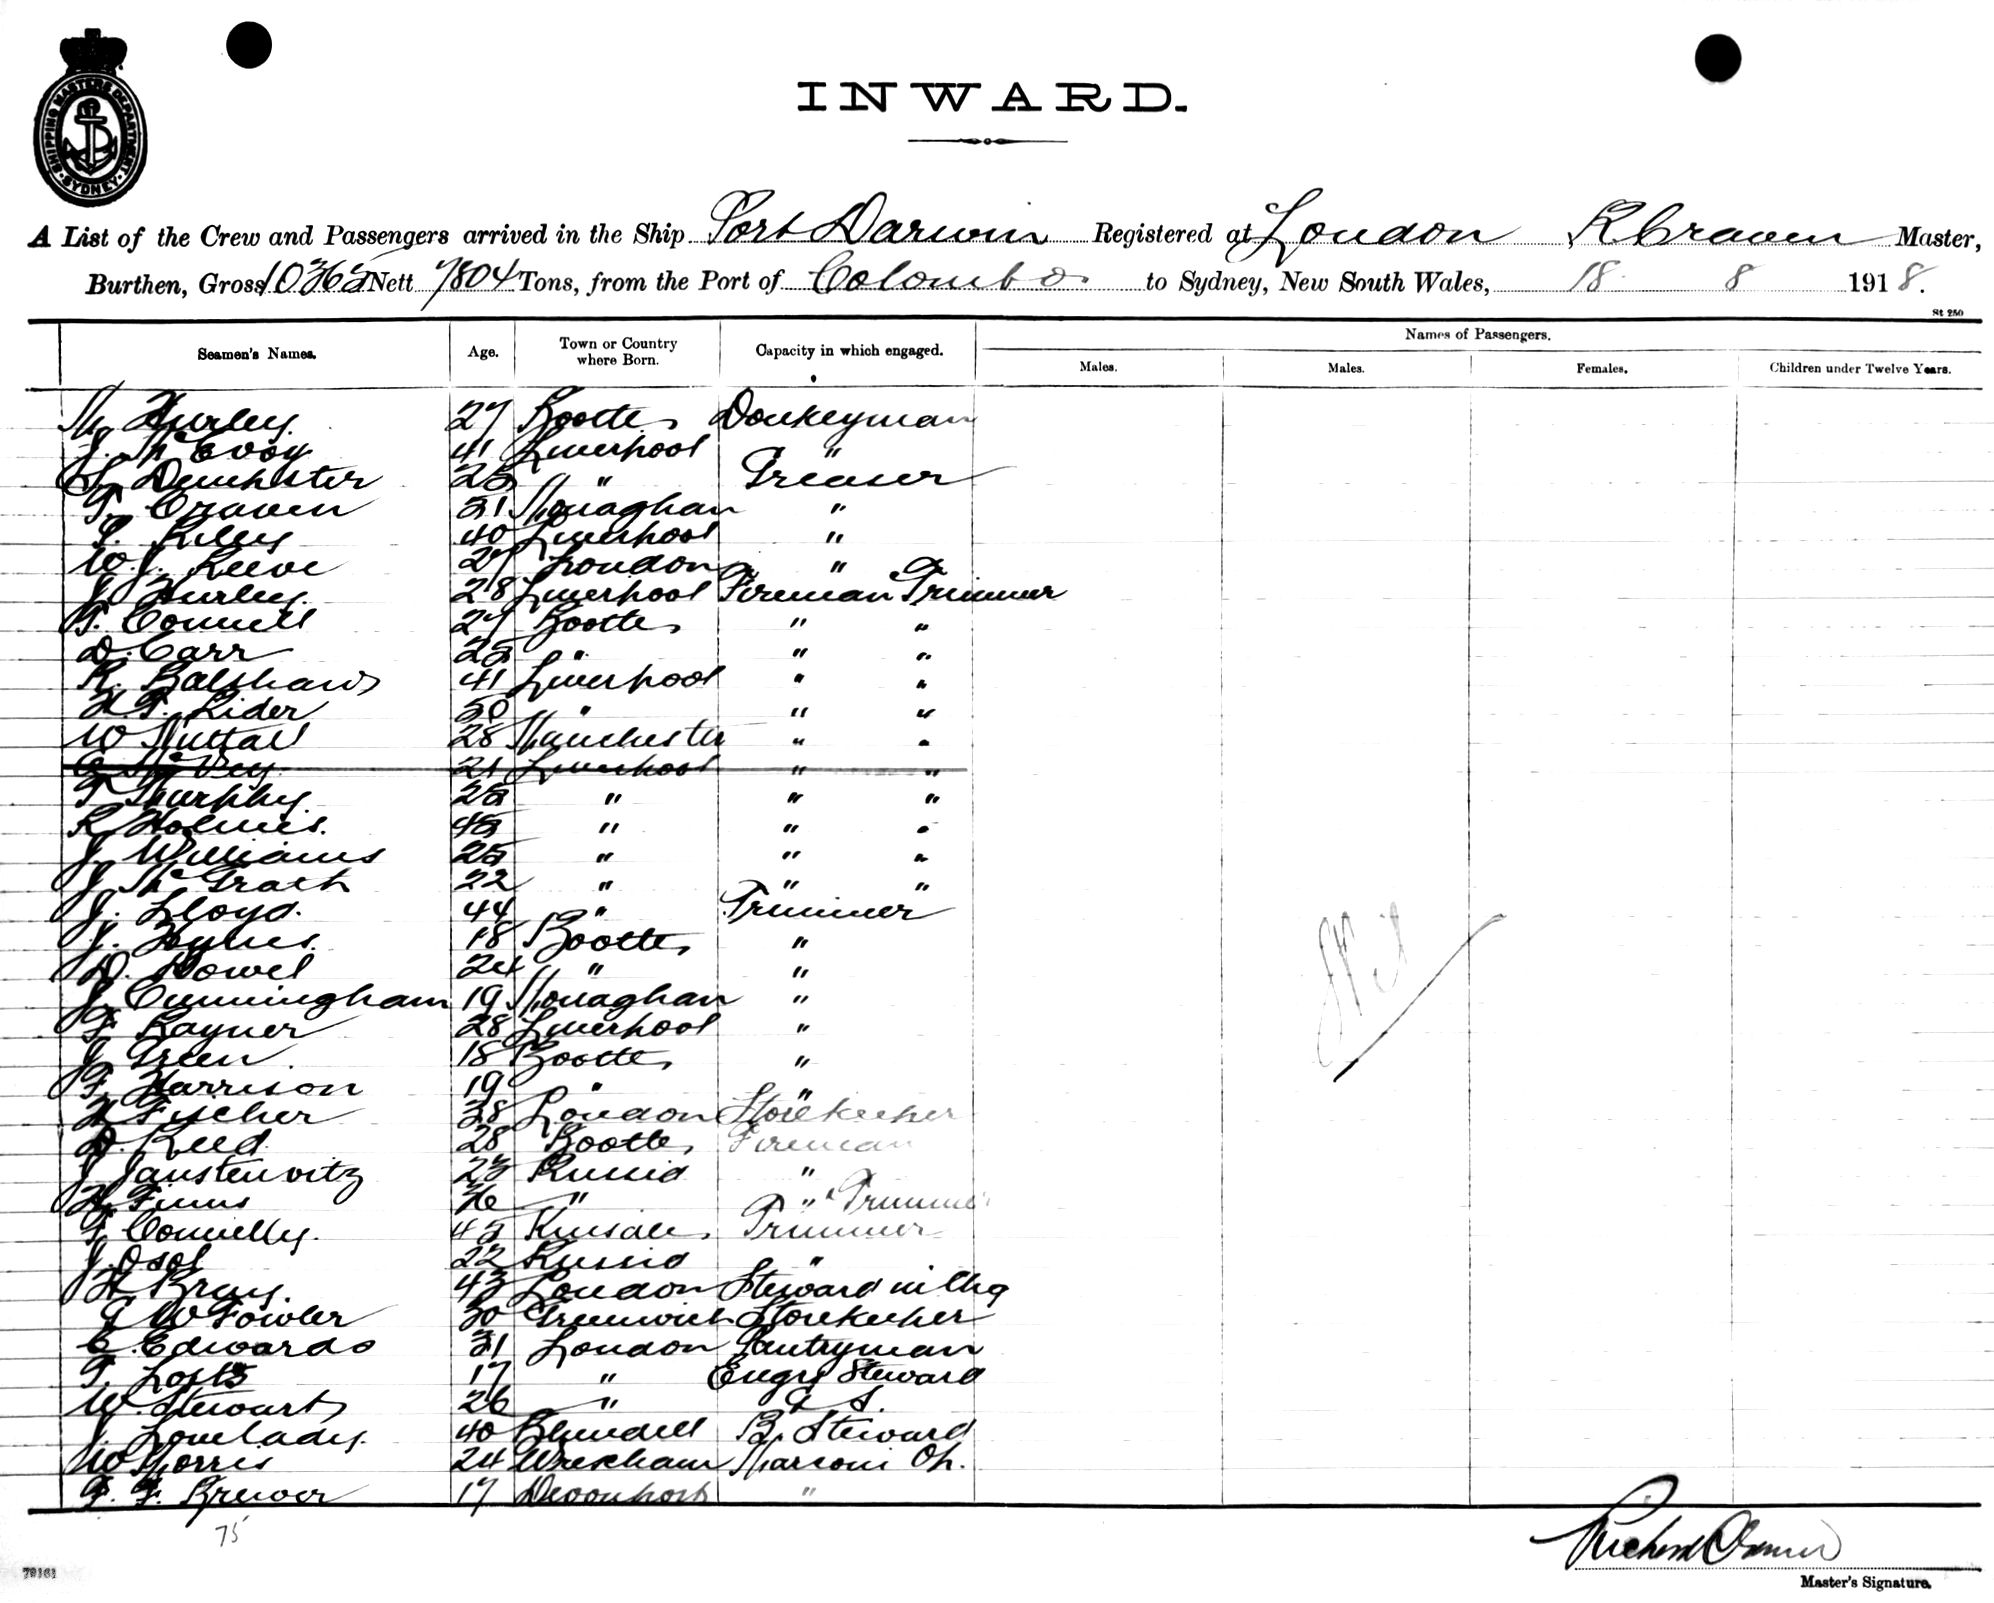 SHIPPING MASTERS DEPARTMENT SYDNEY
INWARD.
A List of the Crew and Passengers arrived in the Ship Port Darwin Registered at London R Craven Master,
Burthen, Gross 10365 Nett 7804 Tons, from the Port of Colombo to Sydney, New South Wales, 18 8 1918.
St 250
Seamen's Names. Age. Town or Country where Born. Capacity in which engaged. Names of Passengers.
Males. Males. Females. Children under Twelve Years.
M Hurley 27 Bootle Donkeyman
J. McEvoy 41 Liverpool "
Dempster " Greaser
T. Craven Monaghan "
Riley 40 Liverpool "
W. J. Reeve 27 London "
J Hurley 28 Liverpool Fireman Trimmer
T. Connell 27 Bootle " "
D. Carr 25 " " "
R. Balshaw 41 Liverpool " "
H. T. Rider 50 " " "
W Nuttall 28 Manchester " "
21 Liverpool " "
T Murphy 25 " " "
R Holmes 45 " " "
J Williams 25 " " "
J McGrath 22 " " "
J. Lloyd. 44 " Trimmer
J. Hynes 18 Bootle "
D. Powel 24 " "
J. Cunningham 19 Monaghan "
F Rayner 28 Liverpool "
J Green 18 Bootle "
F. Harrison 19 " "
H Fischer 38 London Storekeeper
D. Reed 28 Bootle Fireman
J Janstenvitz 23 Russia "
H 26 " " Trimmer
Connelly. 45 Kinsale Trimmer
J. Osol 22 Russia "
H Bray. 43 London Steward in Chg
G W Fowler 30 Greenwich Storekeeper
C. Edwards 31 London Pantryman
T. 17 " Engrs Steward
W. Stewart 26 " G S.
J. Lovelady. 40 Blundell Steward
W Morris 24 Wrexham Marconi Op.
F. Brewer 17 Devonport "
Nil
75
Richard Craven
79161
Master's Signature.